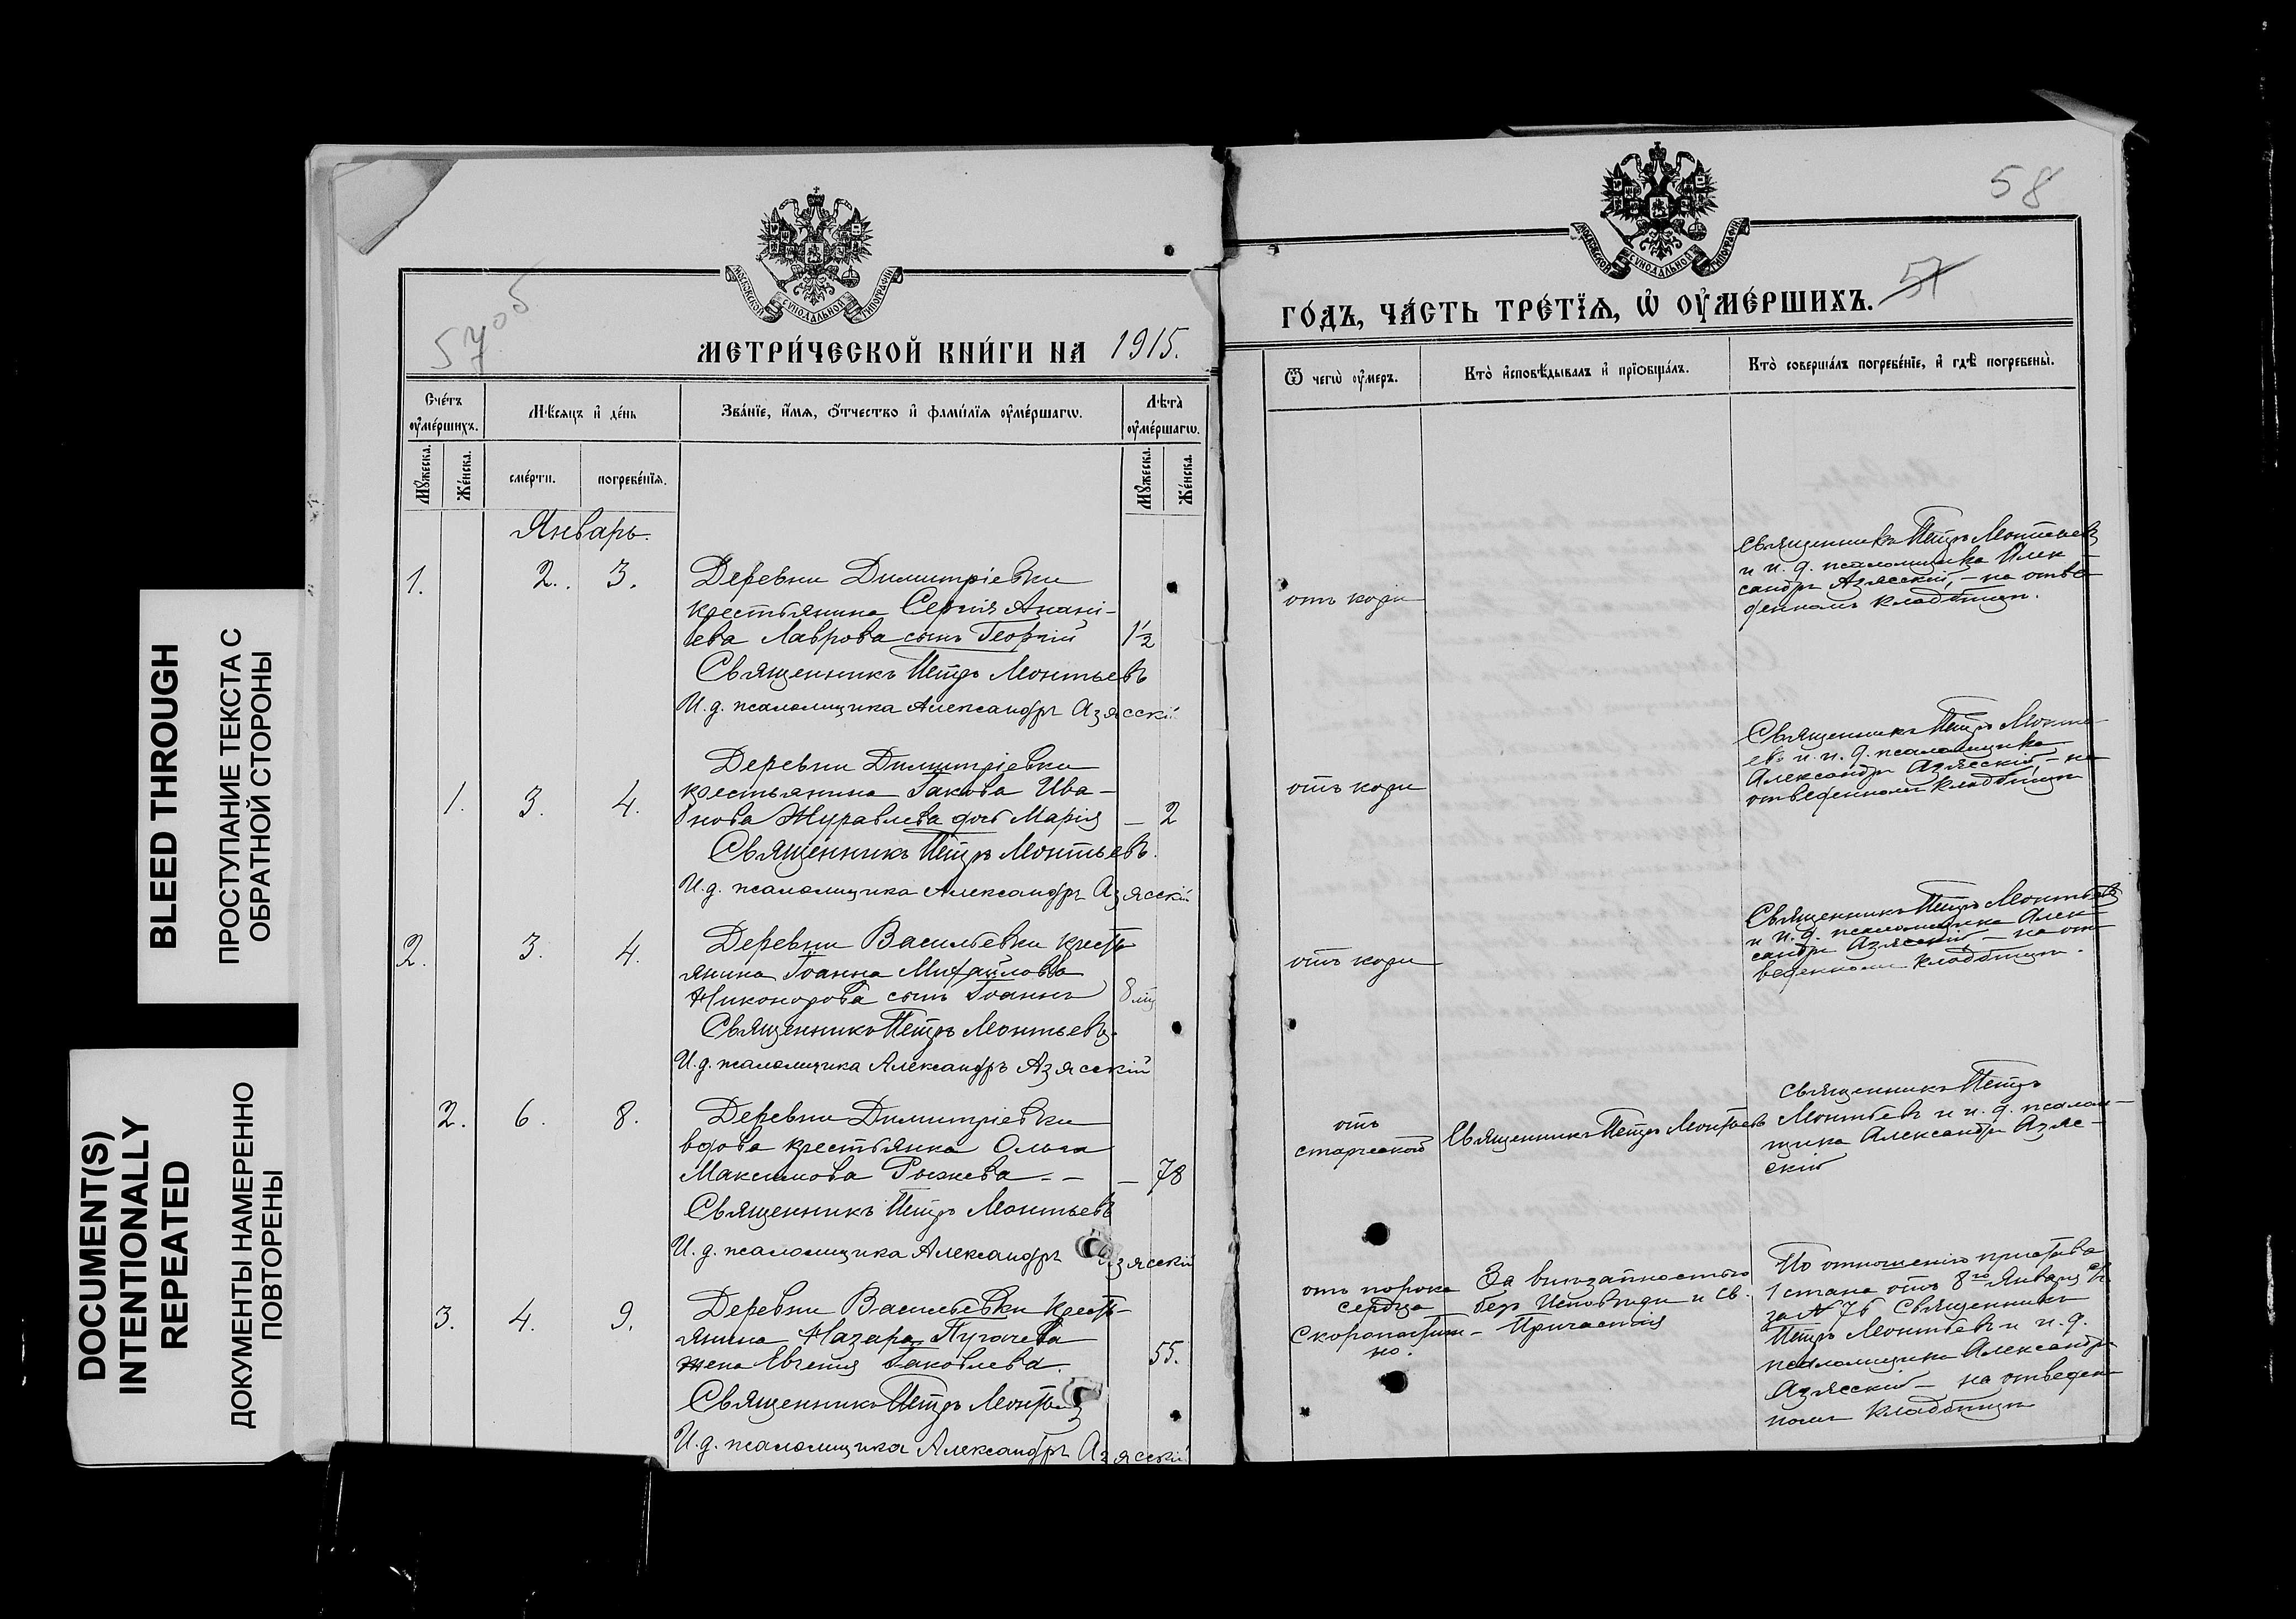 BLEED THROUGH
ПРОСТУПАНИЕ ТЕКСТА С
ОБРАТНОЙ СТОРОНЫ
DOCUMENT(S)
INTENTIONALLY
REPEATED
ДОКУМЕНТЫ НАМЕРЕННО
ПОВТОРЕНЫ
57об
МОСКОВСКОЙ СѴНОДАЛЬНОЙ ТИПОГРАФІИ
МЕТРИ́ЧЕСКОЙ КНИ́ГИ НА 1915.
Сче́тъ
оу҆ме́ршихъ.
Мѣ́сяцъ и҆ де́нь
Зва́нїе, и҆́мѧ, ѻ҆́тчество и҆ фами́лїѧ оу҆ме́ршагѡ.
Лѣта̀
оу҆ме́ршагѡ.
Мꙋ́жеска.
Же́нска.
сме́рти.
погребе́нїѧ.
Мꙋ́жеска.
Же́нска.
Январь.
1. 2. 3. Деревни Димитріевки
крестьянина Сергія Анані-
ева Лаврова сынъ Георгій 1½
Священникъ Петръ Леонтьевъ
И.д. псаломщика Александръ Азясскій
Деревни Димитріевки
1. 3. 4. крестьянина Іакова Ива-
нова Журавлева дочь Марія — 2
Священникъ Петръ Леонтьевъ.
И.д. псаломщика Александръ Азясскій
2. 3. 4. Деревни Васильевки кресть
янина Іоанна Михайлова
Никонорова сынъ Іоаннъ 8 мц
Священникъ Петръ Леонтьевъ.
И.д. псаломщика Александръ Азясскій
2. 6. 8. Деревни Димитріевки
вдова крестьянка Ольга
Максимова Рыжева - - — 78
Священникъ Петръ Леонтьевъ
И.д. псаломщика Александръ Азясскій
3. 4. 9. Деревни Васильевки кресть-
янина Назара Пугачева
жена Евгенія Іаковлева. 55.
Священникъ Петръ Леонтьевъ
И.д. псаломщика Александръ Азясскій
58
МОСКОВСКОЙ СѴНОДАЛЬНОЙ ТИПОГРАФІИ
ГО́ДЪ, ЧА́СТЬ ТРЕ́ТЇѦ, Ѡ҆ ОУ҆МЕ́РШИХЪ. 57
Ѿ чегѡ̀ оу҆́меръ.
Кто̀ и҆сповѣ́дывалъ и҆ прїѻбща́лъ.
Кто̀ соверша́лъ погребе́нїе, и҆ гдѣ̀ погребены̀.
отъ кори
Священникъ Петръ Леонтьевъ
и и. д. псаломщика Алек-
сандръ Азясскій, - на отве-
денномъ кладбищѣ.
отъ кори
Священникъ Петръ Леонть-
евъ и и. д. псаломщика
Александръ Азясскій, - на
отведенномъ кладбищѣ
отъ кори
Священникъ Петръ Леонтьевъ
и и. д. псаломщика Алек-
сандръ Азясскій, - на от-
веденномъ кладбищѣ.
отъ
старческой
Священникъ Петръ Леонтьевъ
Священникъ Петръ
Леонтьевъ и и. д. псалом-
щика Александръ Азяс-
скій
отъ порока
сердца
Скоропостиж-
но.
За внезапностью
безъ Исповѣди и Св.
Причастія
По отношенію пристава
1 стана отъ 8го Января с/г.
за № 76 Священникъ
Петръ Леонтьевъ и и. д.
псаломщика Александръ
Азясскій - на отведен-
номъ кладбищѣ